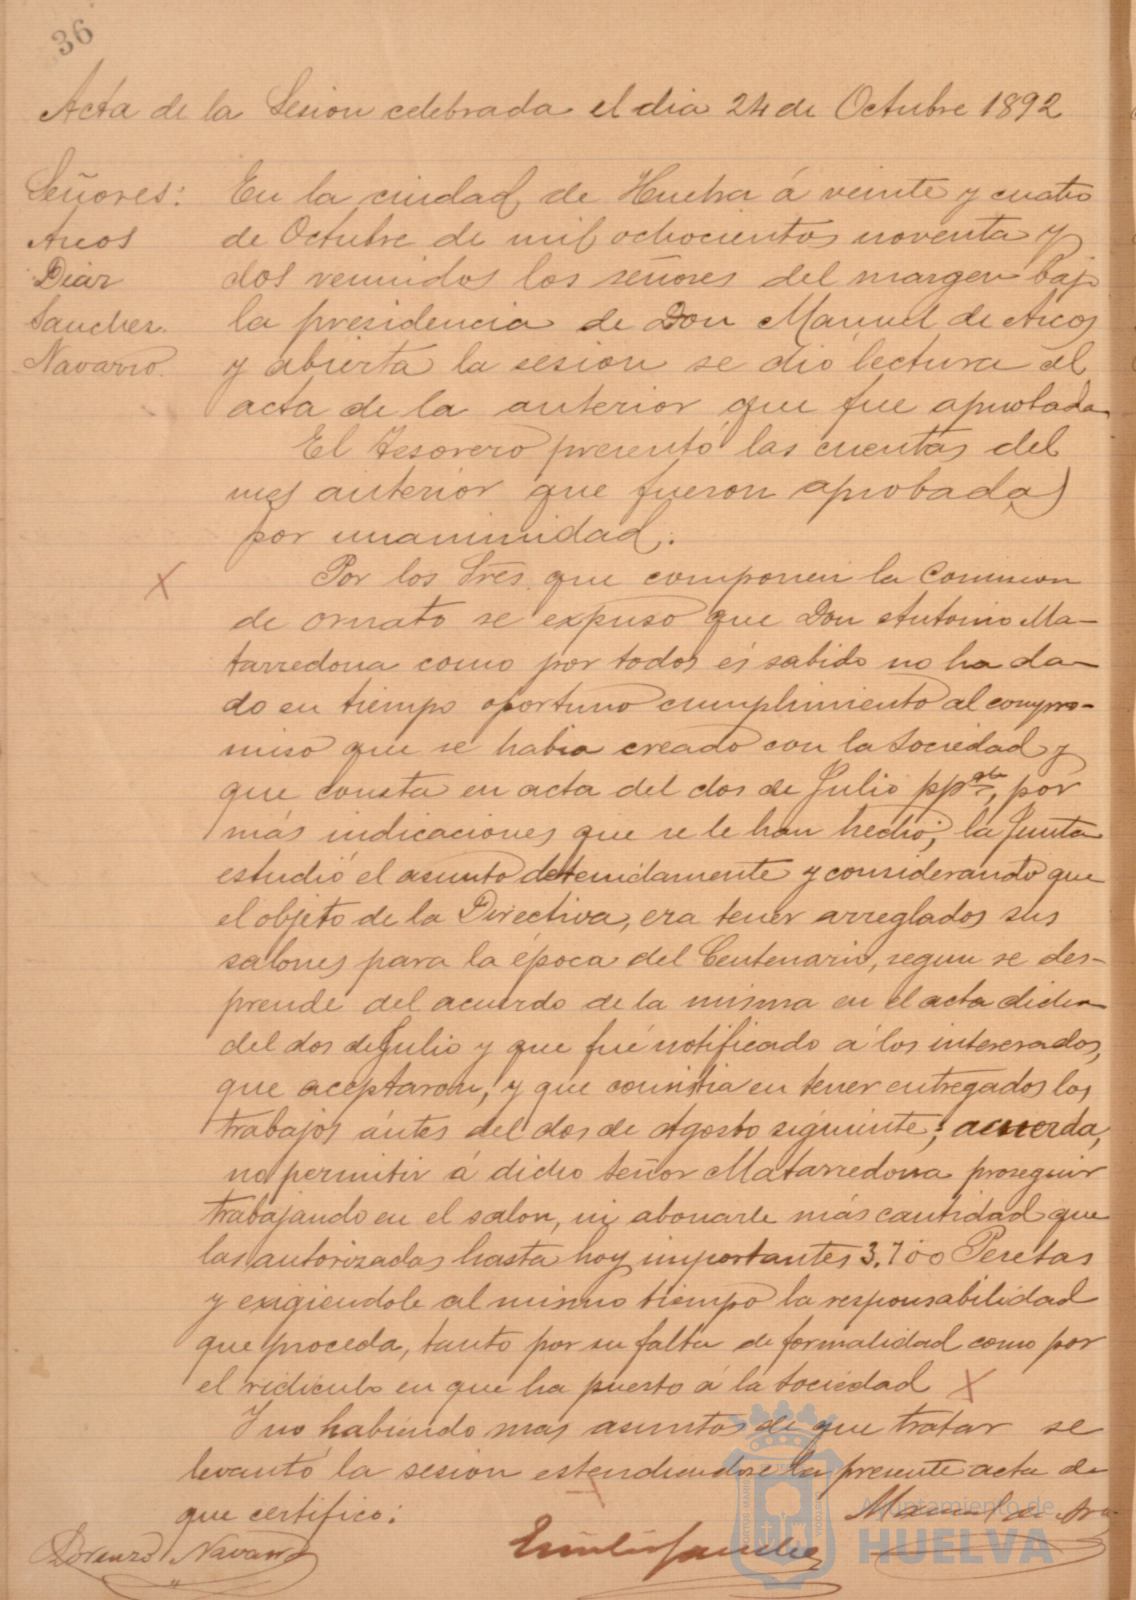 36
Acta de la Sesion celebrada el dia 24 de Octubre 1892
Señores:
Arcos
Diaz
Sanchez.
Navarro.
En la ciudad de Huelva á veinte y cuatro
de Octubre de mil ochocientos noventa y
dos reunidos los señores del margen bajo
la presidencia de Don Manuel de Arcos
y abierta la sesion se dió lectura al
acta de la anterior que fue aprobada
El Tesorero presentó las cuentas del
mes anterior que fueron aprobadas
por unanimidad.
Por los Sres. que componen la Comision
de ornato se expuso que Don Antonio Ma-
tarredona como por todos és sabido no ha da-
do en tiempo oportuno cumplimiento al compro-
miso que se habia creado con la Sociedad y
que consta en acta del dos de Julio por
más indicaciones que se le han hecho; la Junta
estudió el asunto detenidamente y considerando que
el objeto de la Directiva, era tener arreglados sus
salones para la época del Centenario, segun se des-
prende del acuerdo de la misma en el acta dicha
del dos de Julio y que fué notificado á los interesados,
que aceptaron, y que consistia en tener entregados los
trabajos ántes del dos de Agosto siguiente; acuerda,
no permitir á dicho Señor Matarredona proseguir
trabajando en el salon, ni abonarle más cantidad que
las autorizadas hasta hoy importantes 3.700 Pesetas
y exigiendole al mismo tiempo la responsabilidad
que proceda, tanto por su falta de formalidad como por
el ridiculo en que ha puesto á la Sociedad
Y no habiendo mas asuntos de que tratar se
levantó la sesion estendiendose la presente acta de
que certifico:
Manuel de Arcos
Lorenzo Navarro
Emilio Sanchez
Ayuntamiento de
HUELVA